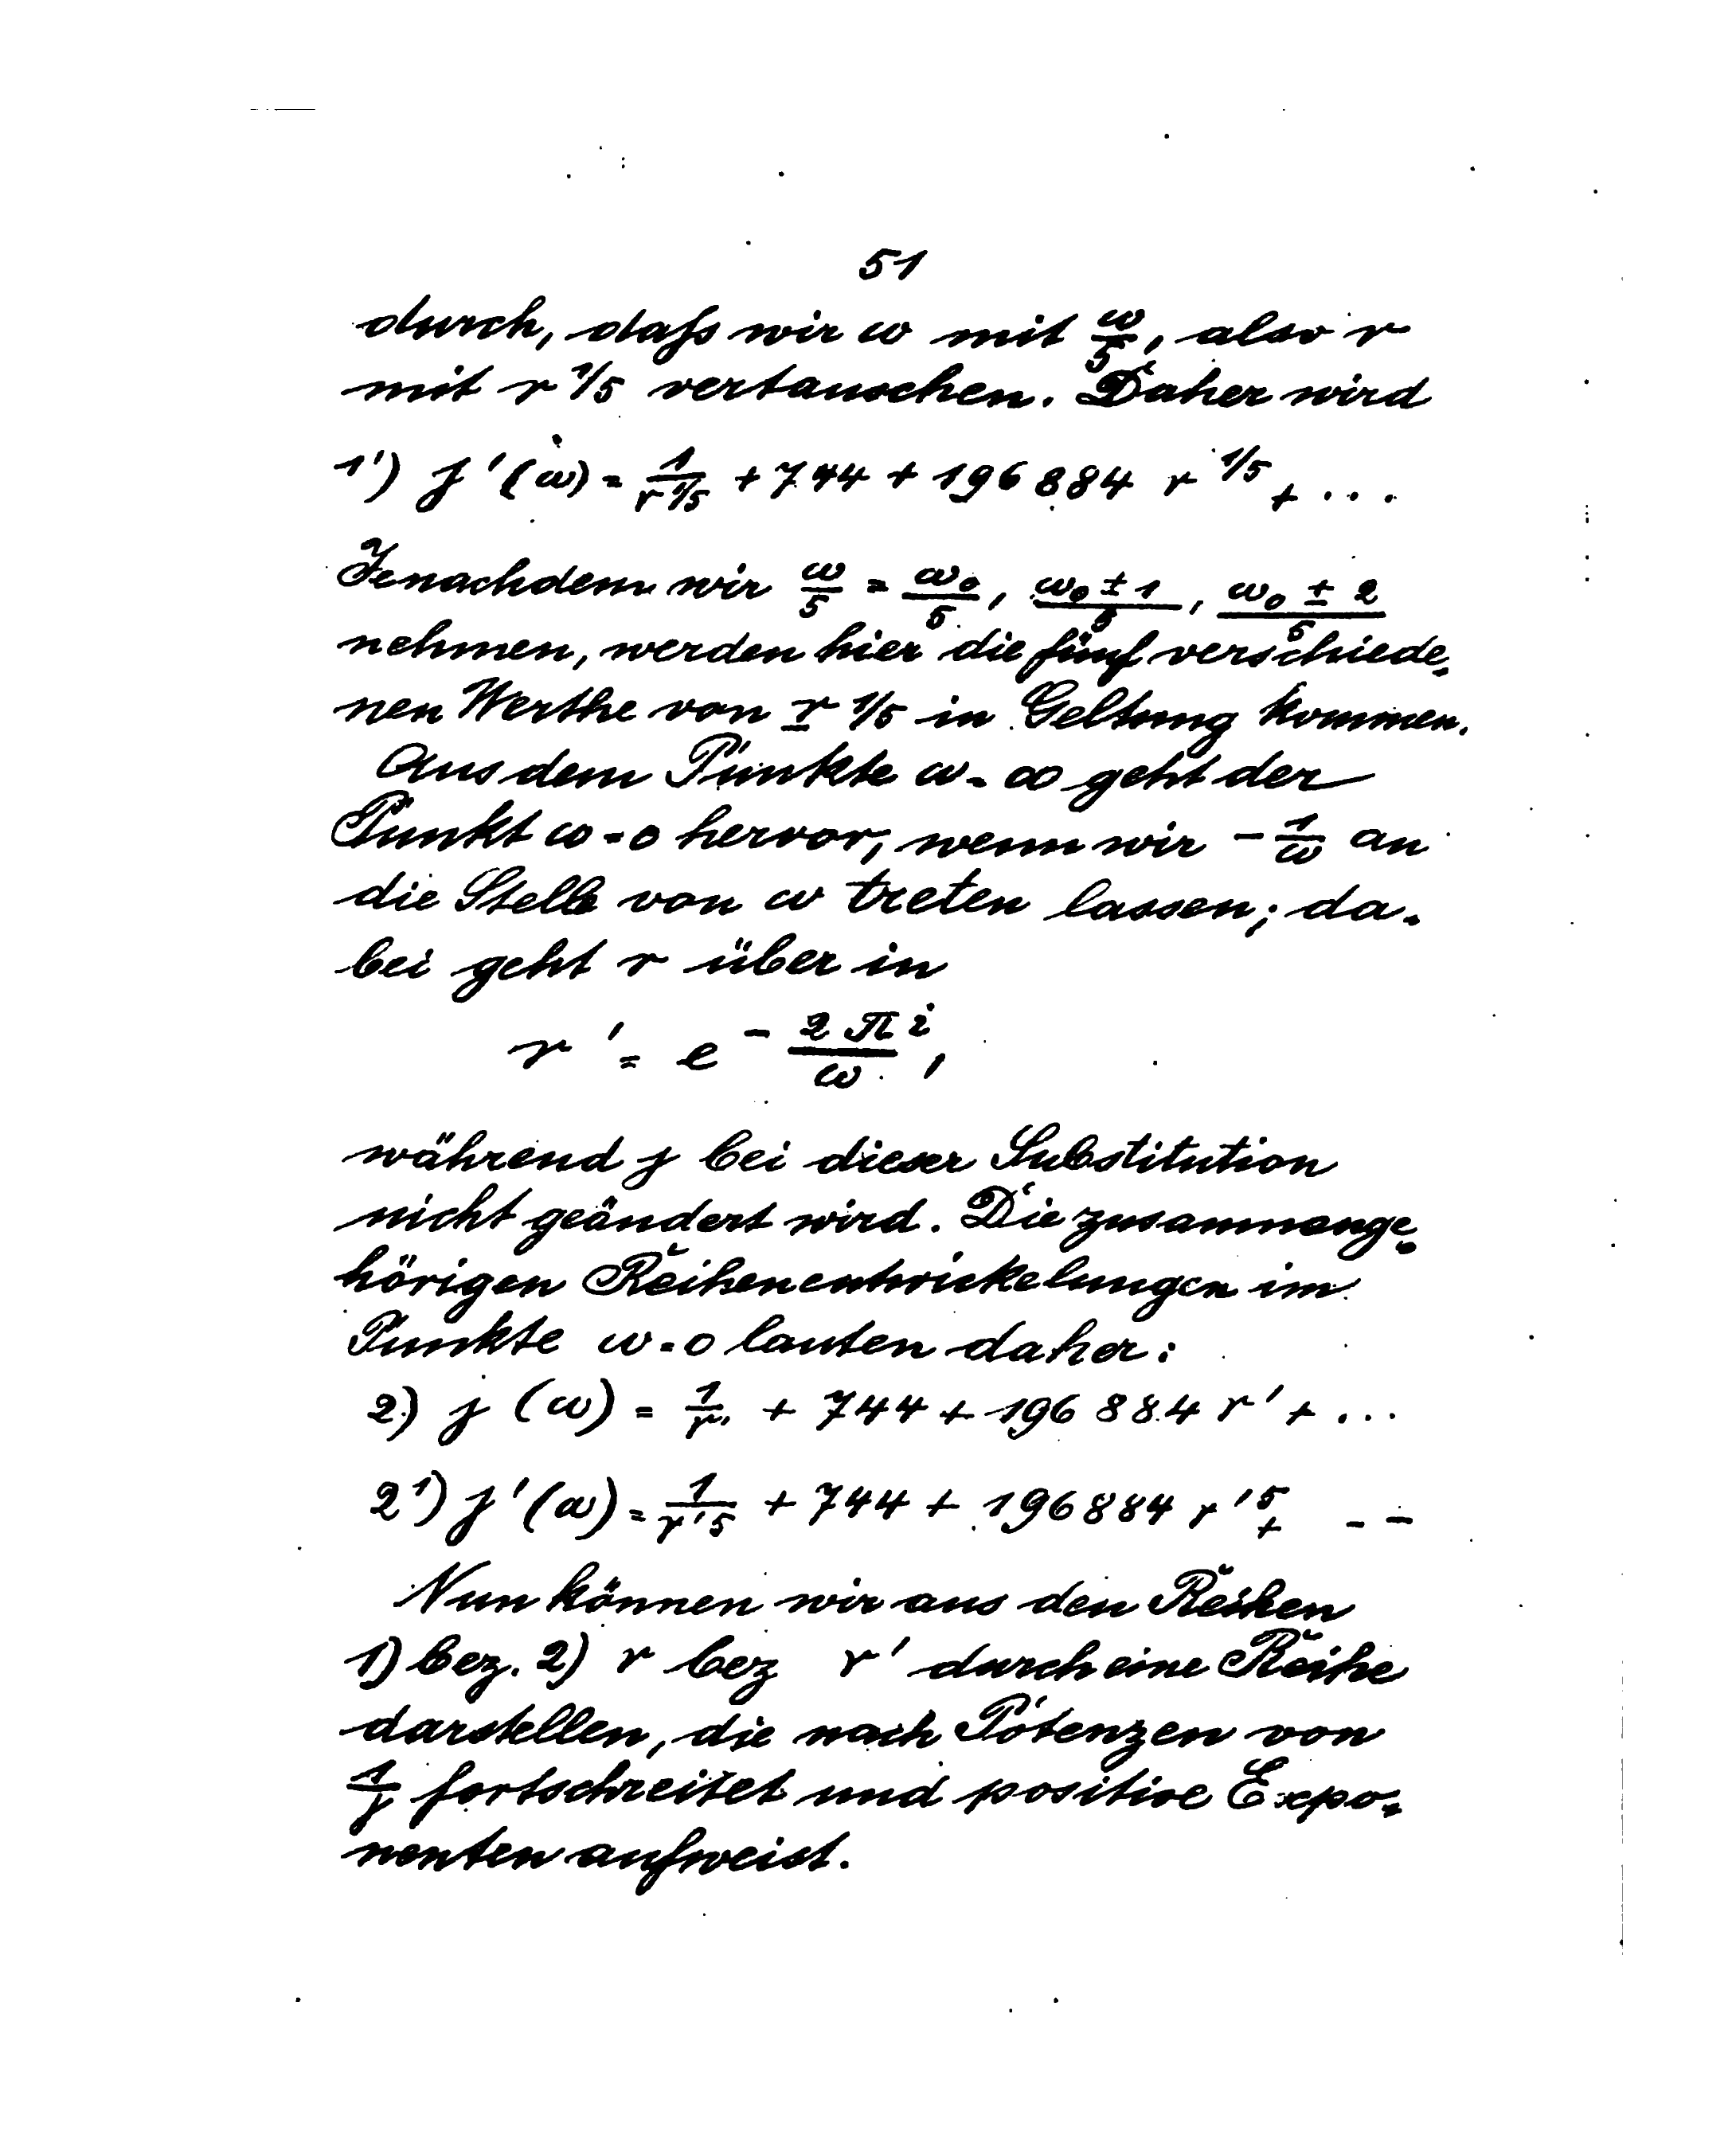 51
durch, daſs wir ω mit ω/5, also r
mit r^1/5 vertauschen. Daher wird
1') j'(ω) = 1/r^1/5 + 744 + 196 884 r^1/5 + ...
Jenachdem wir ω/5 = ω₀/5, (ω₀ ± 1)/5, (ω₀ ± 2)/5
nehmen, werden hier die fünf verschiede-
nen Werthe von r^1/5 in Geltung kommen.
Aus dem Punkte ω = ∞ geht der
Punkt ω = 0 hervor, wenn wir - 1/ω an
die Stelle von ω treten lassen; da-
bei geht r über in
r' = e^(- 2πi/ω),
während j bei dieser Substitution
nicht geändert wird. Die zusammenge-
hörigen Reihenentwickelungen im
Punkte ω = 0 lauten daher:
2) j (ω) = 1/r' + 744 + 196 884 r' + ...
2') j'(ω) = 1/r'^5 + 744 + 196884 r'^5 + - -
Nun können wir aus den Reihen
1) bez. 2) r bez r' durch eine Reihe
darstellen, die nach Potenzen von
1/j fortschreitet und positive Expo-
nenten aufweist.